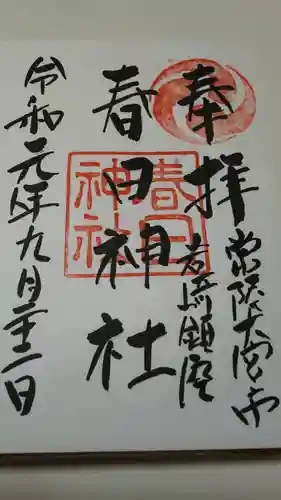 奉拝
常陸大宮市
岩崎鎮座
春日神社
春日
神社
令和元年九月二十一日